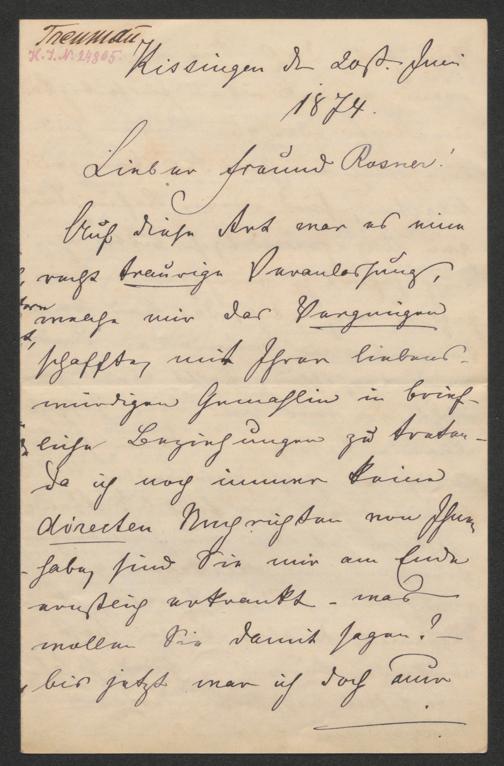 Treumann
H.I.N. 24805.
Kissingen d. 20st. Juni
1874.
Lieber Freund Rosner!
Auf diese Art war es eine
recht traurige Veranlassung,
welche mir das Vergnügen
schaffte, mit Ihrer liebens-
würdigen Gemahlin in brief-
liche Beziehungen zu treten –
Da ich noch immer keine
directen Nachrichten von Ihnen
habe, sind Sie mir am Ende
ernstlich erkrankt – was
wollen Sie damit sagen? –
bis jetzt war ich doch nur